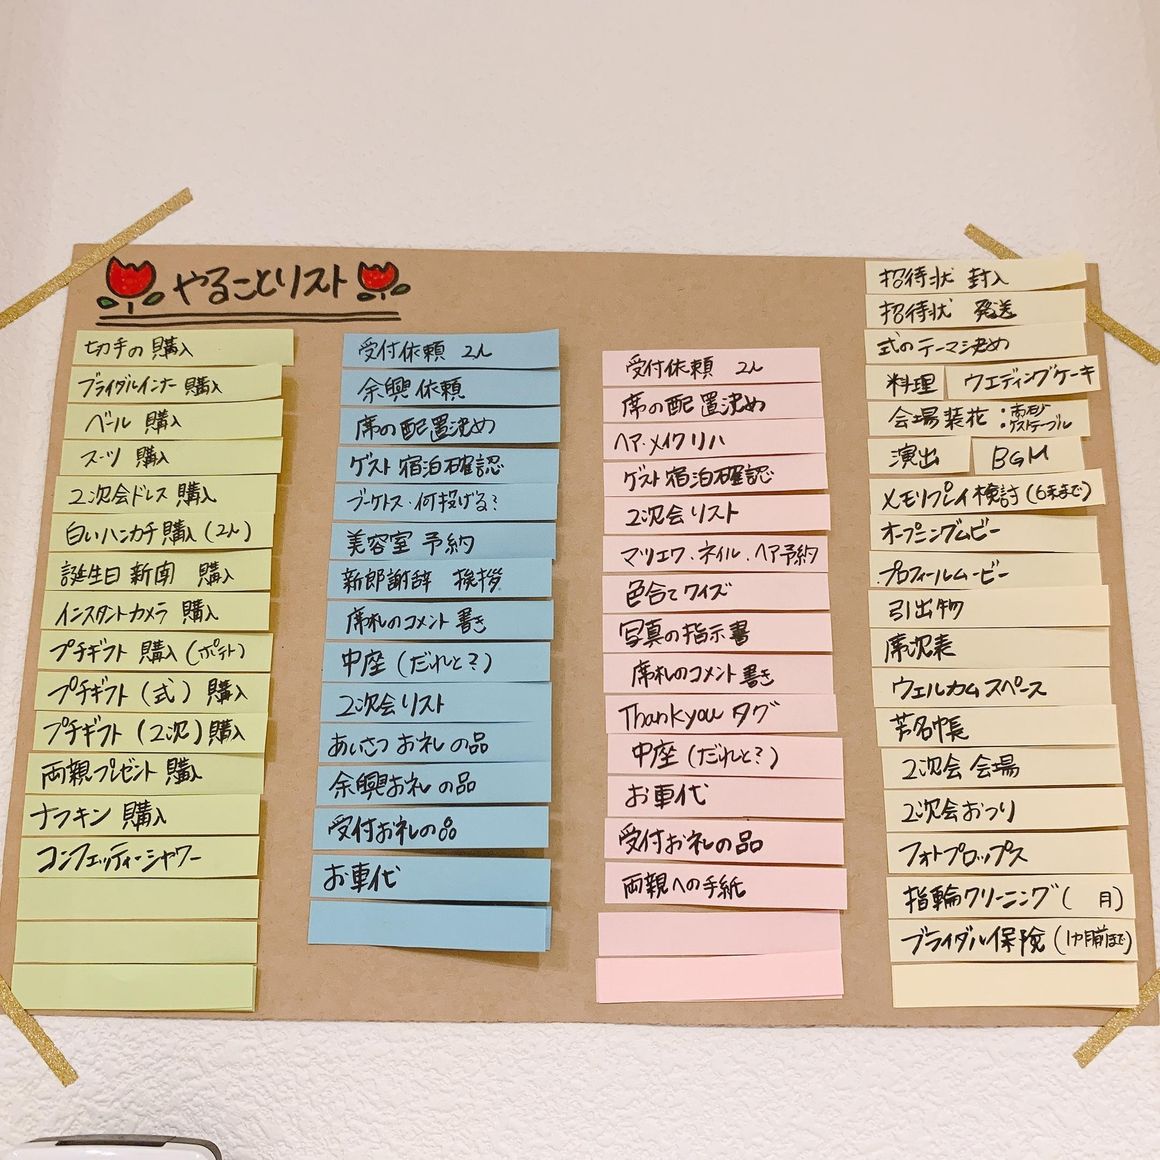 やることリスト
切手の購入
ブライダルインナー購入
ベール 購入
スーツ 購入
2次会ドレス 購入
白いハンカチ購入(2人)
誕生日新聞 購入
インスタントカメラ 購入
プチギフト 購入(ポテト)
プチギフト(式) 購入
プチギフト(2次) 購入
両親プレゼント 購入
ナフキン 購入
コンフェッティーシャワー
受付依頼 2人
余興依頼
席の配置決め
ゲスト宿泊確認
ブーケトス・何投げる?
美容室 予約
新郎謝辞 挨拶
席札のコメント書き
中座(だれと?)
2次会リスト
あいさつ お礼の品
余興お礼の品
受付お礼の品
お車代
受付依頼 2人
席の配置決め
ヘア・メイクリハ
ゲスト宿泊確認
2次会リスト
マツエク・ネイル・ヘア予約
色合てクイズ
写真の指示書
席札のコメント書き
Thankyou タグ
中座(だれと?)
お車代
受付お礼の品
両親への手紙
招待状 封入
招待状 発送
式のテーマ決め
料理 ウエディングケーキ
会場装花:高砂・ゲストテーブル
演出 BGM
メモリプレイ検討(6末まで)
オープニングムビー
プロフィールムービー
引出物
席次表
ウェルカムスペース
芳名帳
2次会 会場
2次会おつり
フォトプロップス
指輪クリーニング( 月)
ブライダル保険(1ヶ月前まで)